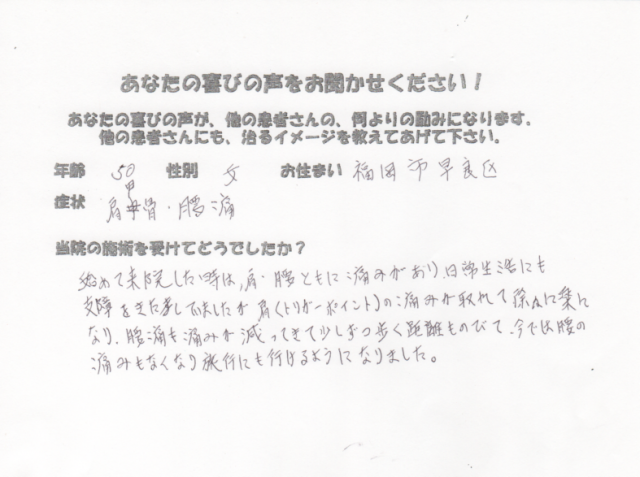 あなたの喜びの声をお聞かせください!
あなたの喜びの声が、他の患者さんの、何よりの励みになります。
他の患者さんにも、治るイメージを教えてあげて下さい。
年齢 50 性別 女 お住まい 福岡市早良区
症状 肩甲骨・腰痛
当院の施術を受けてどうでしたか?
始めて来院した時は、肩・腰ともに痛みがあり、日常生活にも
支障をきたしてましたが肩(トリガーポイント)の痛みが取れて に楽に
なり、腰痛も痛みが減ってきて少しずつ歩く距離ものびて、今では腰の
痛みもなくなり旅行にも行けるようになりました。